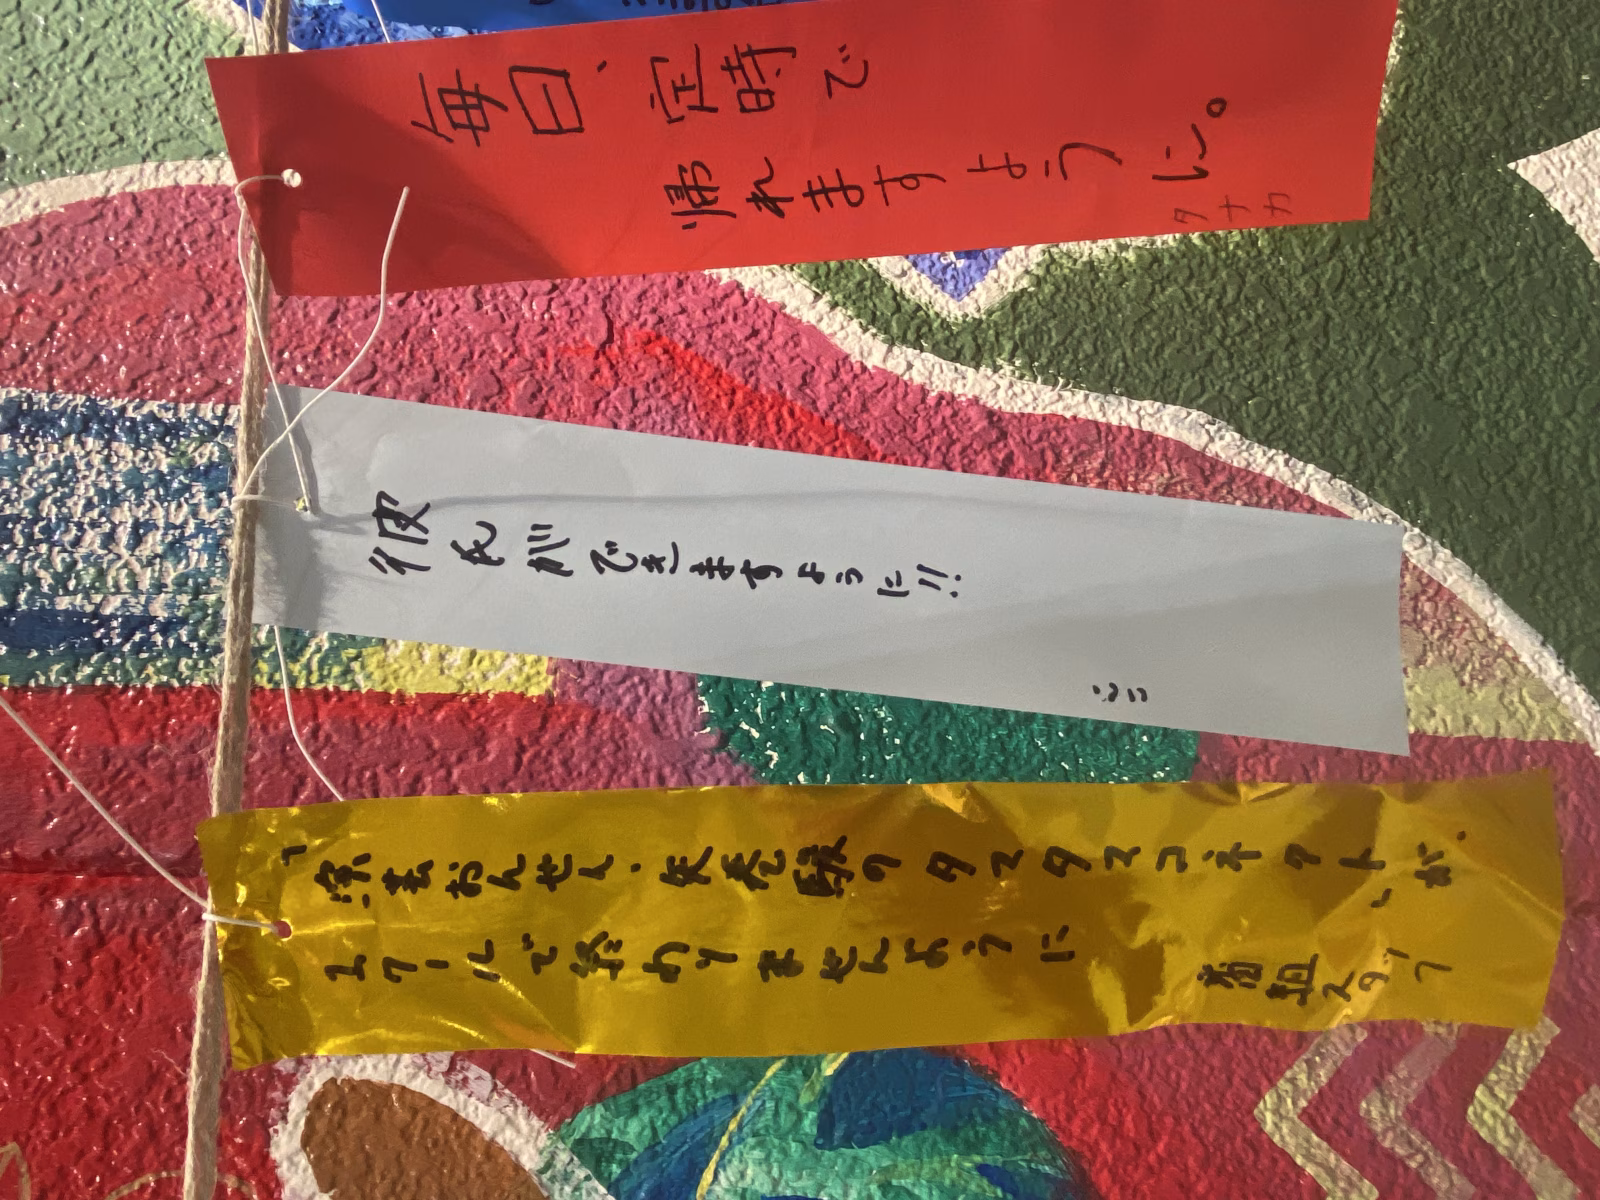 毎日、定時で
帰れますように。
タナカ
彼氏ができますように!!
おんせん・
コネクト」が、
1クールで終わりませんように
番組スタッフ